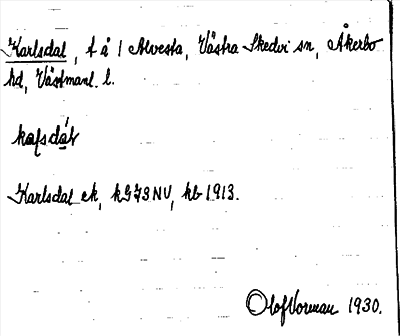 Karlsdal, t å 1 Alvesta, Västra Skedvi sn, Åkerbo
hd, Västmanl. l.
kaſsdáɫ
Karlsdal ek, kG 73 NV, kb 1913.
Olof Norman 1930.